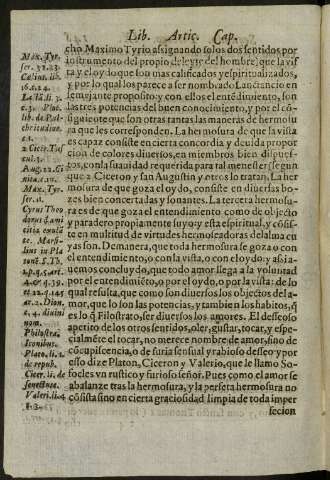 Lib. Artic. Cap.
cho Maximo Tyrio assignando solos dos sentidos por
instrumento del propio deleyte del hombre, que la vis
ta y el oydo que son mas calificados y espiritualizados,
y por lo qual los parece a ser nombrado Landrancio en
semejante proposito y con ellos el entēdimiento, son
las tres potencias del buen conocimiento, y por el cō-
siguiente que son otras tantas las maneras de hermosu
ra que les corresponden. La hermosura de que la vista
es capaz consiste en cierta concordia y deuida propor
cion de colores diuersos, en miembros bien dispues-
tos, con la suauidad requerida para tal menester segun
que a Ciceron y san Augustin y otros lo tratan. La her
mosura de que goza el oydo, consiste en diuersas bo-
zes bien concertadas y sonantes. La tercera hermosu-
ra es de que goza el entendimiento como de objecto
y paradero propiamente suyo y esta espiritual, y cōsis-
te en multitud de virtudes hermoseadas del alma cu
yas son. De manera, que toda hermosura se goza o con
el entendimiento, o con la vista, o con el oydo: assi a-
uemos concluydo, que todo amor llega a la voluntad
por el entendimiēto, o por el oydo, o por la vista: de lo
qual resulta, que como son diuersos los objectos del a-
mor, que lo son las potencias, y tambien los habitos, q̃
es lo q̃ Filostrato, ser diuersos los amores. El desseoso
apetito de los otros sentidos, oler, gustar, tocar, y espe-
cialmēte el tocar, no merece nombre de amor, sino de
cōcupiscencia, o de furia sensual y rabioso desseo: y por
esso dize Platon, Ciceron y Valerio, que le llamo So-
focles vn rustico y furioso señor. Pues como el amor se
abalanze tras la hermosura, y la perfeta hermosura no
cōsista sino en cierta graciosidad limpia de toda imper
fecion
Max. Tyr.
ser. 32.23.
Cælius. lib.
16.c.24.
c. 3. Plot.
lib. de Pul-
chritudine.
c.1.
2. Cicer. Tus
cul. 3.
Aug. 22. Ci
uita. c. 19.
Max. Tyr.
ser. 11.
Cyrus Theo
dorus
Marsi-
lius in Pla
tonē. S. Th.
1.p.q.5.art.
4. & q.39.
ar. 2. Dion.
c. 4. diuini
nom.
Philostra.
Iconibus.
Plato. li. 1.
de repub.
Cicer. li. de
senectute.
Valeri. li. 4
c. 3.